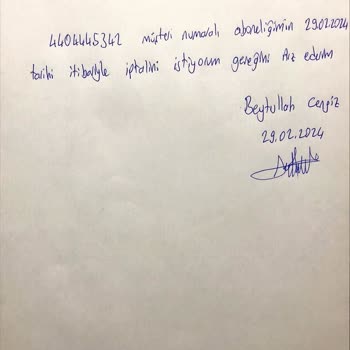 4404445342 müşteri numaralı aboneliğimin 29.02.2024
tarihi itibariyle iptalini istiyorum gereğini Arz ederim
Beytullah Cengiz
29.02.2024